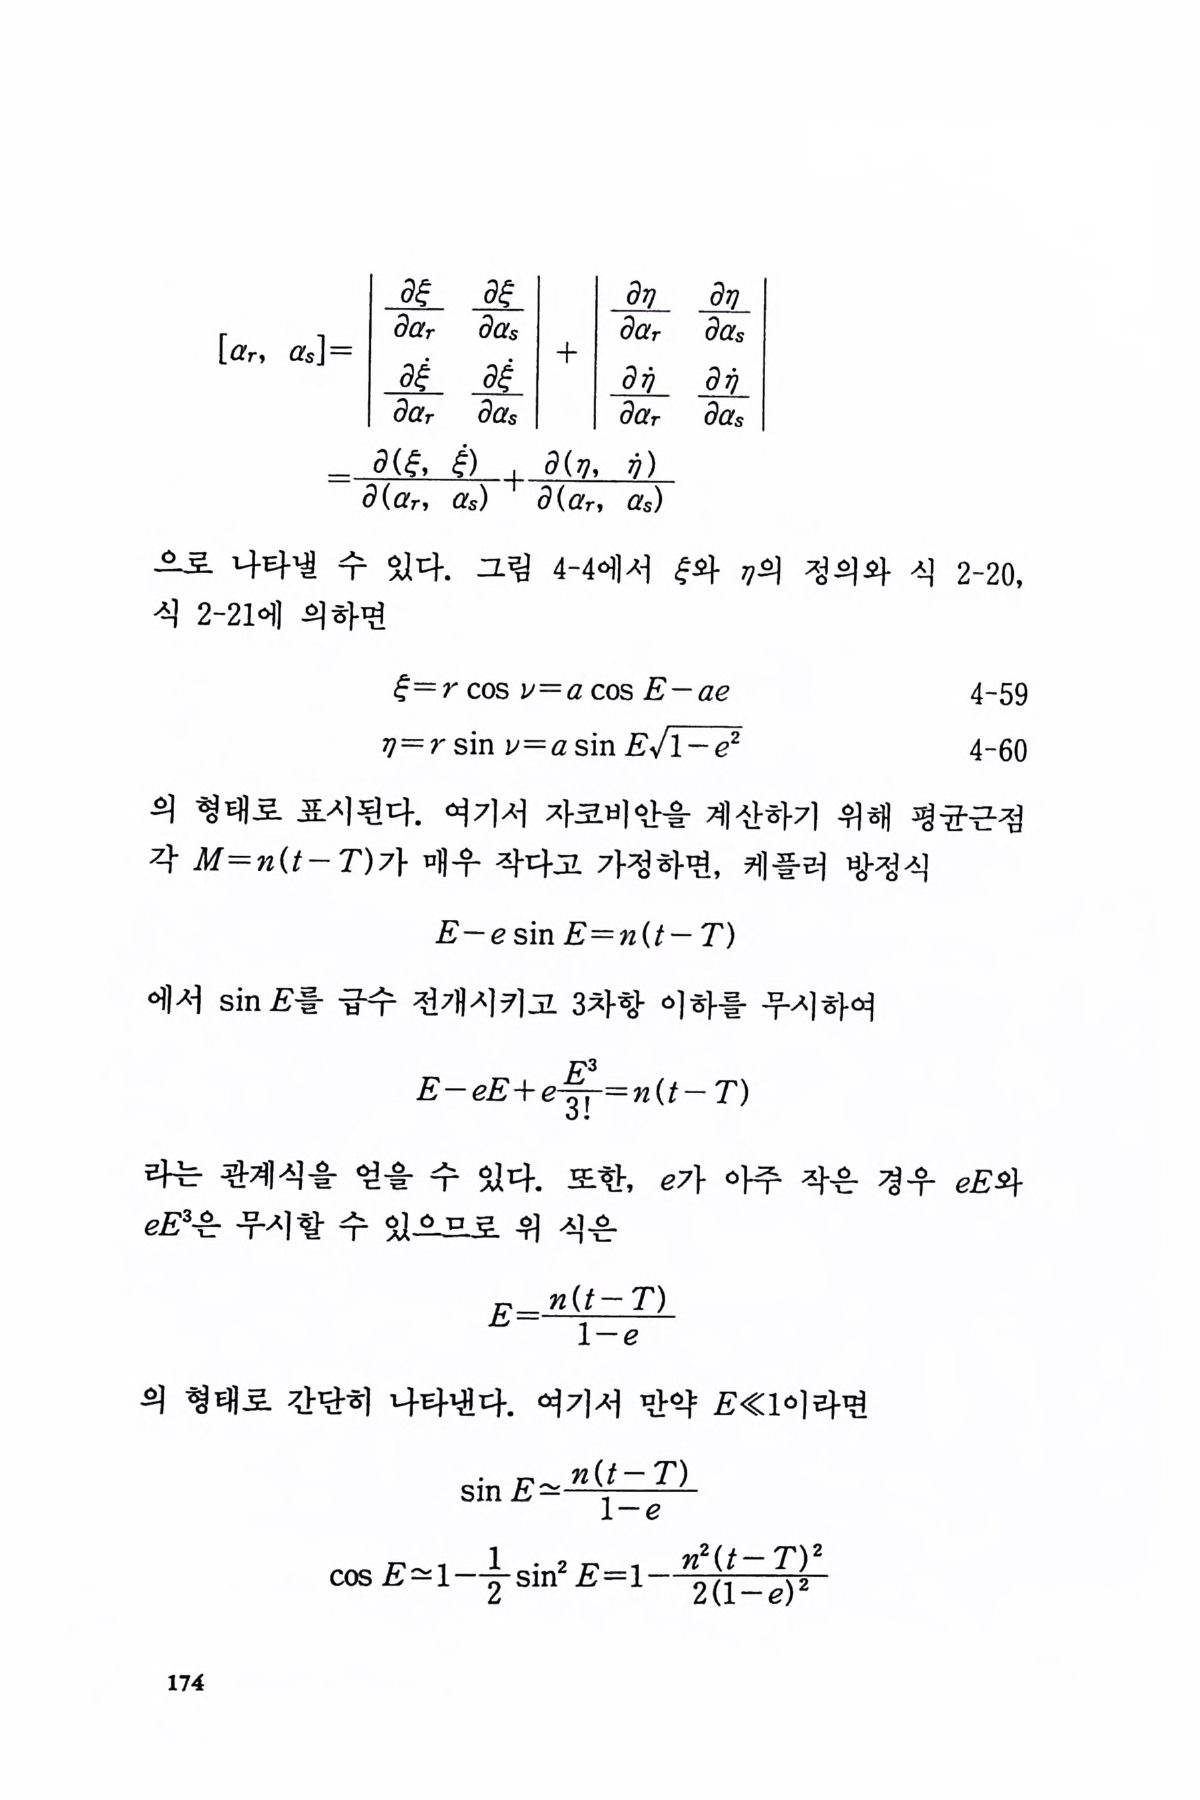 [αᵣ, αₛ]= | ∂ξ/∂αᵣ ∂ξ/∂αₛ ; ∂ξ̇/∂αᵣ ∂ξ̇/∂αₛ | + | ∂η/∂αᵣ ∂η/∂αₛ ; ∂η̇/∂αᵣ ∂η̇/∂αₛ |
= ∂(ξ, ξ̇)/∂(αᵣ, αₛ) + ∂(η, η̇)/∂(αᵣ, αₛ)
으로 나타낼 수 있다. 그림 4-4에서 ξ와 η의 정의와 식 2-20,
식 2-21에 의하면
ξ=r cos ν=a cos E−ae 4-59
η=r sin ν=a sin E√(1−e²) 4-60
의 형태로 표시된다. 여기서 자코비안을 계산하기 위해 평균근점
각 M=n(t−T)가 매우 작다고 가정하면, 케플러 방정식
E−e sin E=n(t−T)
에서 sin E를 급수 전개시키고 3차항 이하를 무시하여
E−eE+e E³/3! =n(t−T)
라는 관계식을 얻을 수 있다. 또한, e가 아주 작은 경우 eE와
eE³은 무시할 수 있으므로 위 식은
E= n(t−T)/(1−e)
의 형태로 간단히 나타낸다. 여기서 만약 E≪1이라면
sin E≃ n(t−T)/(1−e)
cos E≃1− 1/2 sin² E=1− n²(t−T)²/2(1−e)²
174